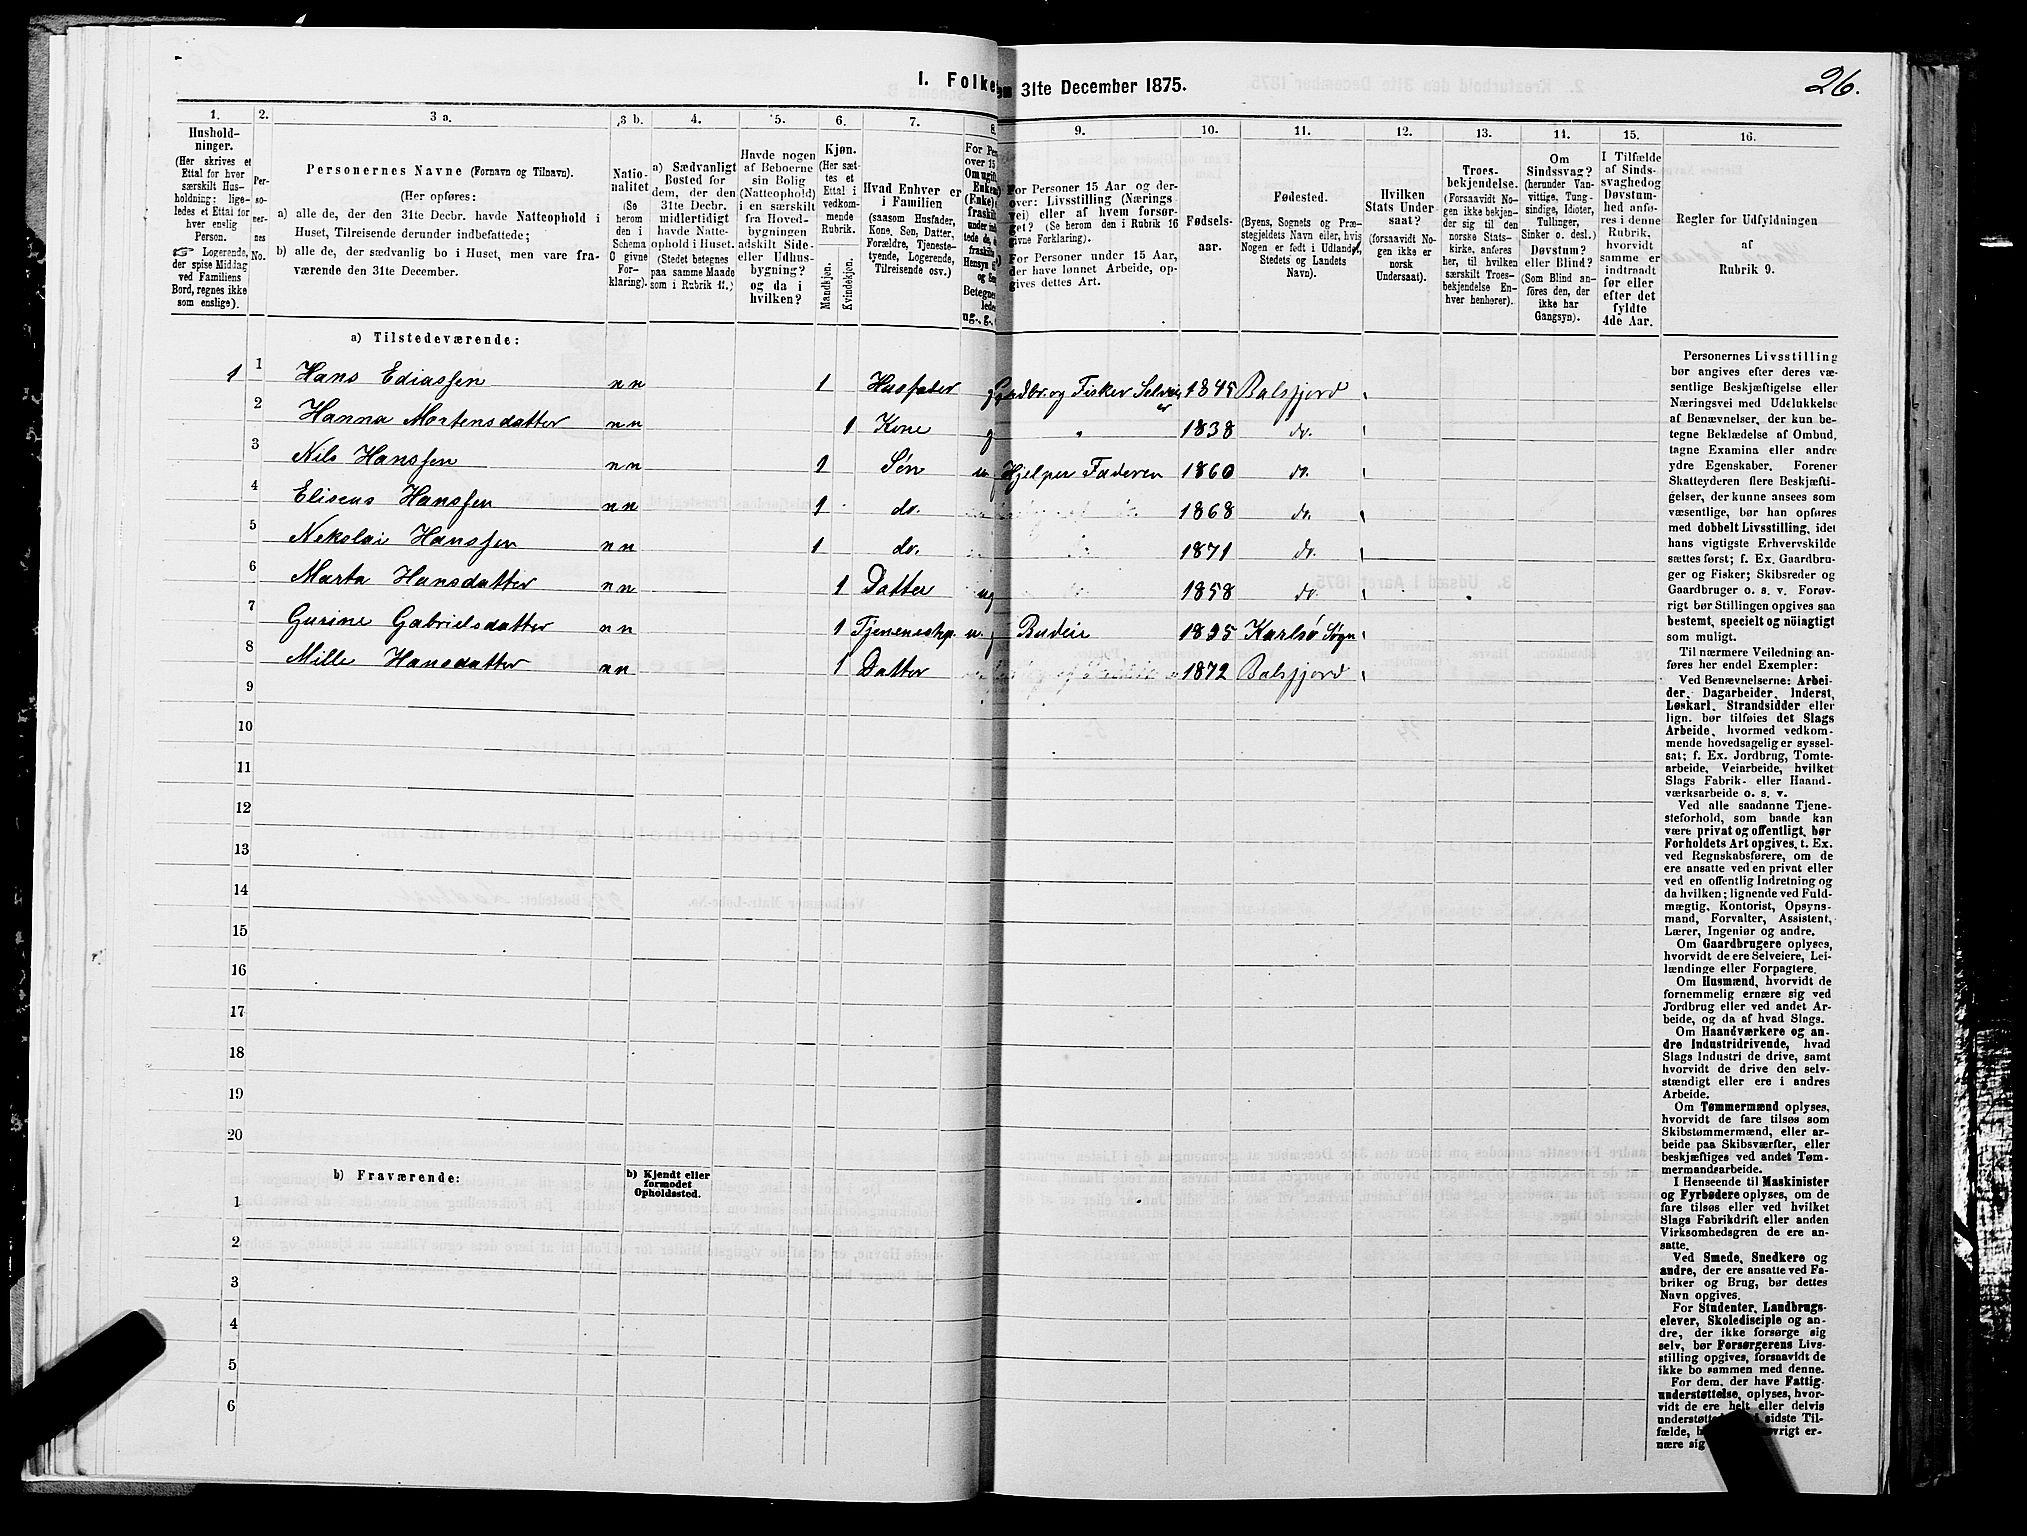 26.
I. Folke
31te December 1875.
1. 2. 3 a. 3 b. 4. 5. 6. 7. 8. 9. 10. 11. 12. 13. 14. 15. 16.
Hushold-
ninger.
(Her skrives et
Ettal for hver
særskilt Hus-
holdning; lige-
ledes et Ettal for
hver enslig
Person.
☞ Logerende,
der spise Middag
ved Familiens
Bord, regnes ikke
som enslige).
Per-
so-
ner-
nes
No.
Personernes Navne (Fornavn og Tilnavn).
(Her opføres:
a) alle de, der den 31te Decbr. havde Natteophold i
Huset, Tilreisende derunder indbefattede;
b) alle de, der sædvanlig bo i Huset, men vare fra-
værende den 31te December.
Natio-
nalitet
(Se
herom
den i
Schema
O givne
For-
klaring).
a) Sædvanligt
Bosted for
dem, der den
31te Decbr.
midlertidigt
havde Natte-
ophold i Huset.
(Stedet betegnes
paa samme Maade
som i Rubrik 11.)
Havde nogen
af Beboerne
sin Bolig
(Natteophold)
i en særskilt
fra Hoved-
bygningen
adskilt Side-
eller Udhus-
bygning?
og da i
hvilken?
Kjøn.
(Her sæt-
tes et
Ettal i
vedkom-
mende
Rubrik.
Mandkjøn.
Kvindekjøn.
Hvad Enhver er
i Familien
(saasom Husfader,
Kone, Søn, Datter,
Forældre, Tjeneste-
tyende, Logerende,
Tilreisende osv.)
For Pe
over 15
Om ugift
Enken
(Enke),
fraskilt
under ind
tede de,
fraskilte
Hensyn
og
Betegne
lede
ug., g.,
For Personer 15 Aar og der-
over: Livsstilling (Nærings
vei) eller af hvem forsør-
get? (Se herom den i Rubrik 16
givne Forklaring).
For Personer under 15 Aar,
der have lønnet Arbeide, op-
gives dettes Art.
Fødsels-
aar.
Fødested.
(Byens, Sognets og Præ-
stegjeldets Navn eller, hvis
Nogen er født i Udlandet,
Stedets og Landets
Navn).
Hvilken
Stats Under
saat?
(forsaavidt No-
gen ikke er
norsk
Undersaat).
Troes-
bekjendelse.
(Forsaavidt No-
gen ikke bekjen-
der sig til den
norske Stats-
kirke, anføres
her, til hvilken
særskilt Troes-
bekjendelse En-
hver henhører).
Om
Sindssvag?
(herunder Van-
vittige, Tung-
sindige, Idioter,
Tullinger,
Sinker o. desl.)
Døvstum?
eller Blind?
(Som Blind an-
føres den, der
ikke har
Gangsyn).
I Tilfælde
af Sinds-
svaghed og
Døvstum-
hed anfø-
res i denne
Rubrik,
hvorvidt
samme er
indtraadt
før eller
efter det
fyldte
4de Aar.
Regler for Udfyldningen
af
Rubrik 9.
a) Tilstedeværende:
1 1 Hans Ediassen nn 1 Husfader g Gaardbr. og Fisker Selveier 1845 Balsfjord
2 Hanna Mortensdatter nn 1 Kone g " 1838 do.
3 Nils Hanssen nn 1 Søn u Hjelper Faderen 1860 do.
4 Eliseus Hanssen nn 1 do. 1868 do.
5 Nekolai Hanssen nn 1 do. 1871 do.
6 Marta Hansdatter nn 1 Datter ug 1858 do.
7 Gurine Gabrielsdatter nn 1 Tjenestep. u. g Budeie 1835 Karlsø Sogn
8 Mille Hansdatter nn 1 Datter 1872 Balsfjord
9
10
11
12
13
14
15
16
17
18
19
20
b) Fraværende:
b) Kjendt eller
formodet
Opholdssted.
1
2
3
4
5
6
Personernes Livsstilling
bør angives efter deres væ-
sentlige Beskjæftigelse eller
Næringsvei med Udelukkelse
af Benævnelser, der kun be-
tegne Beklædelse af Ombud,
tagne Examina eller andre
ydre Egenskaber. Forener
Skatteyderen flere Beskjæfti-
gelser, der kunne ansees som
væsentlige, bør han opføres
med dobbelt Livsstilling, idet
hans vigtigste Erhvervskilde
sættes først; f. Ex. Gaardbru-
ger og Fisker; Skibsreder og
Gaardbruger o. s. v. Forøv-
rigt bør Stillingen opgives saa
bestemt, specielt og nöiagtigt
som muligt.
Til nærmere Veiledning an-
føres her endel Exempler:
Ved Benævnelserne: Arbei-
der, Dagarbeider, Inderst,
Løskarl, Strandsidder eller
lign. bør tilføies det Slags
Arbeide, hvormed vedkom-
mende hovedsagelig er syssel-
sat; f. Ex. Jordbrug, Tomte-
arbeide, Veiarbeide, hvilket
Slags Fabrik- eller Haand-
værksarbeide o. s. v.
Ved alle saadanne Tjene-
steforhold, som baade kan
være privat og offentligt, bør
Forholdets Art opgives, t. Ex.
ved Regnskabsførere, om de
ere ansatte ved en privat eller
ved en offentlig Indretning og
da hvilken; lignende ved Fuld-
mægtig, Kontorist, Opsyns-
mand, Forvalter, Assistent,
Lærer, Ingeniør og andre.
Om Gaardbrugere oplyses,
hvorvidt de ere Selveiere, Lei-
lændinge eller Forpagtere.
Om Husmænd, hvorvidt de
fornemmelig ernære sig ved
Jordbrug eller ved andet Ar-
beide, og da af hvad Slags.
Om Haandværkere og an-
dre Industridrivende, hvad
Slags Industri de drive, samt
hvorvidt de drive den selv-
stændigt eller ere i andres
Arbeide.
Om Tømmermænd oplyses,
hvorvidt de fare tilsøs som
Skibstømmermænd, eller ar-
beide paa Skibsværfter, eller
beskjæftiges ved andet Tøm-
mermandsarbeide.
I Henseende til Maskinister
og Fyrbødere oplyses, om de
fare tilsøs eller ved hvilket
Slags Fabrikdrift eller anden
Virksomhedsgren de ere an-
satte.
Ved Smede, Snedkere og
andre, der ere ansatte ved Fa-
briker og Brug, bør dettes
Navn opgives.
For Studenter, Landbrugs-
elever, Skoledisciple og an-
dre, der ikke forsørge sig
selv, bør Forsørgerens Livs-
stilling opgives, forsaavidt de
ikke bo sammen med denne.
For dem, der have Fattig-
understøttelse, oplyses, hvor-
vidt de ere helt eller delvis
understøtte sidste Til-
fælde, vrigt er-
nære sig